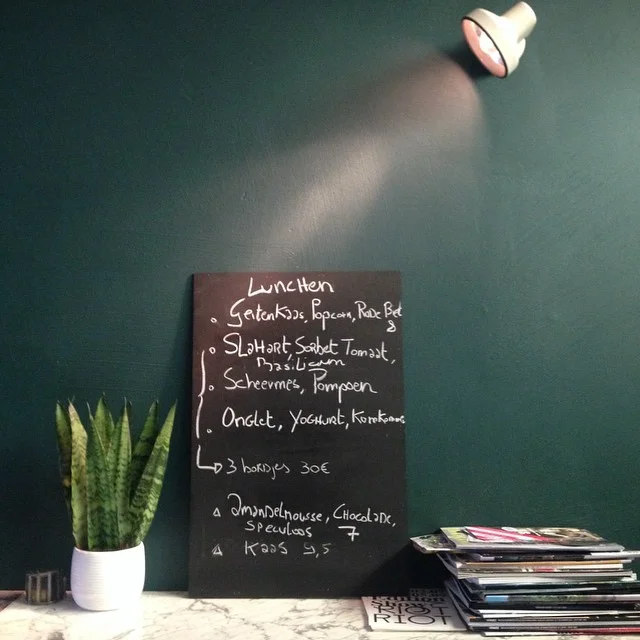 Lunchen
Geitenkaas, Popcorn, Rode Biet
8
Slahart, Sorbet Tomaat,
Basilicum
Scheermes, Pompoen
Onglet, Yoghurt, Komkommer
3 bordjes 30€
Amandelmousse, Chocolade,
Speculoos 7
Kaas 9,5
RIOT